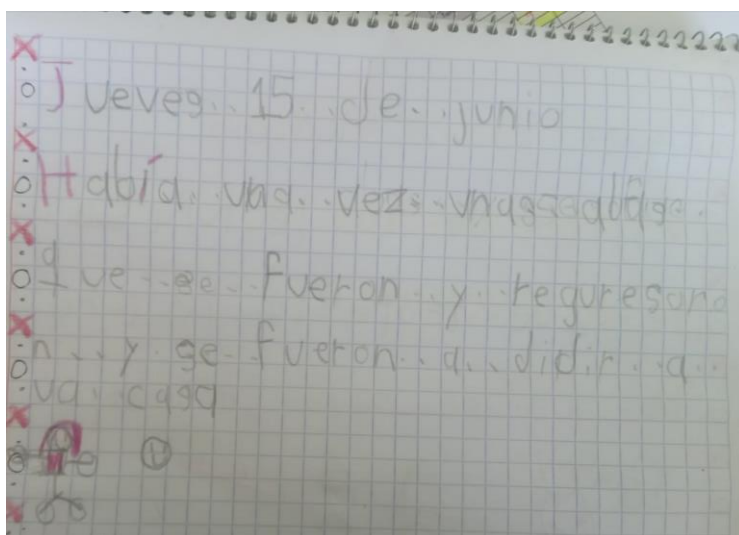 Jueves. 15. de. junio
Había. una. vez. unas
que. se. fueron. y. reguresaro
n. y. se. fueron. a. didir. a.
ua. casa